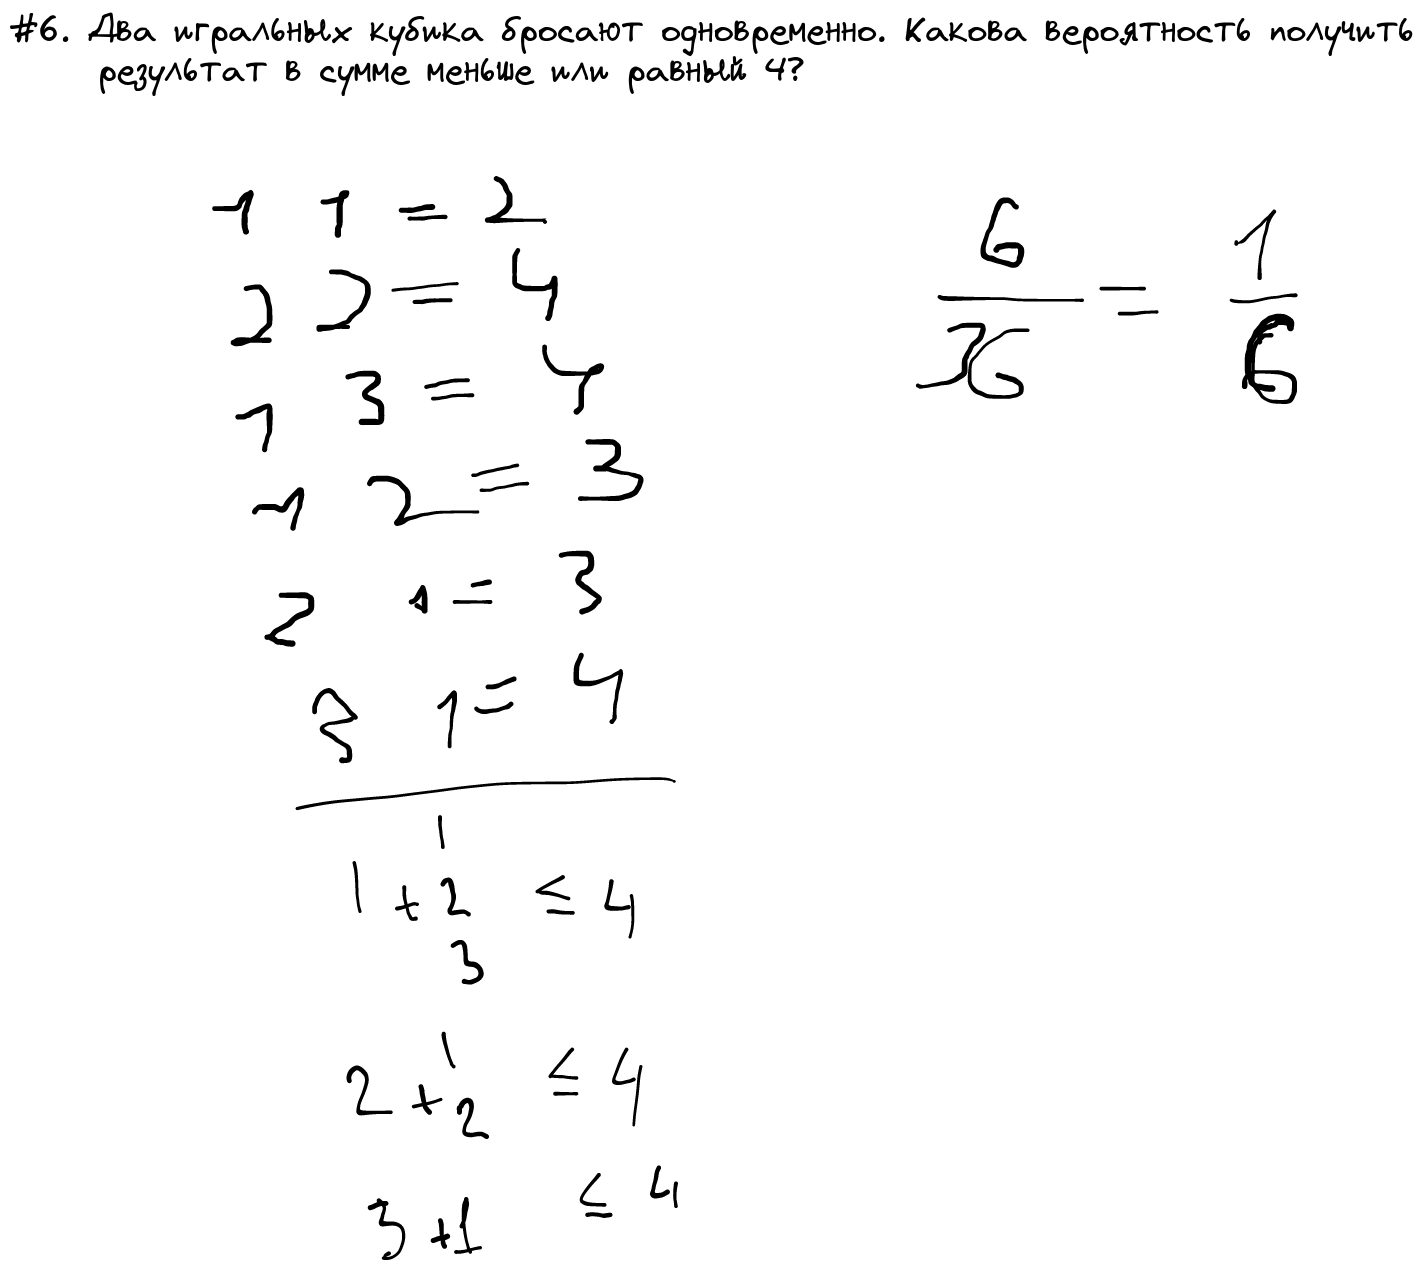 #6. Два игральных кубика бросают одновременно. Какова вероятность получить
результат в сумме меньше или равный 4?
1 1 = 2
2 2 = 4
1 3 = 4
1 2 = 3
2 1 = 3
3 1 = 4
1
1 + 2 ≤ 4
3
1
2 + 2 ≤ 4
3 + 1 ≤ 4
6/36 = 1/6